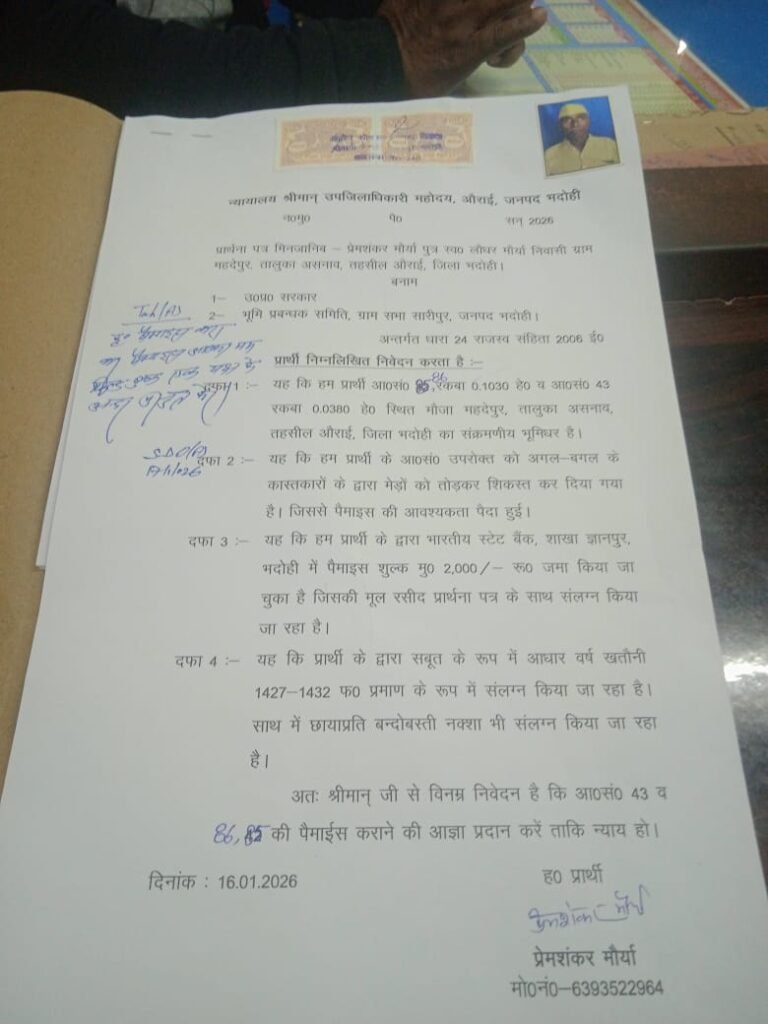 न्यायालय श्रीमान् उपजिलाधिकारी महोदय, औराई, जनपद भदोही
न0मु0 पे0 सन् 2026
प्रार्थना पत्र मिनजानिब – प्रेमशंकर मौर्या पुत्र स्व0 लौधर मौर्या निवासी ग्राम
महदेपुर, तालुका असनाव, तहसील औराई, जिला भदोही।
बनाम
1– उ0प्र0 सरकार
2– भूमि प्रबन्धक समिति, ग्राम सभा सारीपुर, जनपद भदोही।
अन्तर्गत धारा 24 राजस्व संहिता 2006 ई0
प्रार्थी निम्नलिखित निवेदन करता है :–
दफा 1 :– यह कि हम प्रार्थी आ0सं0 86, रकबा 0.1030 हे0 व आ0सं0 43
रकबा 0.0380 हे0 स्थित मौजा महदेपुर, तालुका असनाव,
तहसील औराई, जिला भदोही का संक्रमणीय भूमिधर है।
दफा 2 :– यह कि हम प्रार्थी के आ0सं0 उपरोक्त को अगल-बगल के
कास्तकारों के द्वारा मेड़ों को तोड़कर शिकस्त कर दिया गया
है। जिससे पैमाइस की आवश्यकता पैदा हुई।
दफा 3 :– यह कि हम प्रार्थी के द्वारा भारतीय स्टेट बैंक, शाखा ज्ञानपुर,
भदोही में पैमाइस शुल्क मु0 2,000/– रू0 जमा किया जा
चुका है जिसकी मूल रसीद प्रार्थना पत्र के साथ संलग्न किया
जा रहा है।
दफा 4 :– यह कि प्रार्थी के द्वारा सबूत के रूप में आधार वर्ष खतौनी
1427–1432 फ0 प्रमाण के रूप में संलग्न किया जा रहा है।
साथ में छायाप्रति बन्दोबस्ती नक्शा भी संलग्न किया जा रहा
है।
अतः श्रीमान् जी से विनम्र निवेदन है कि आ0सं0 43 व
86, की पैमाईस कराने की आज्ञा प्रदान करें ताकि न्याय हो।
दिनांक : 16.01.2026
ह0 प्रार्थी
प्रेमशंकर मौर्या
प्रेमशंकर मौर्या
मो0नं0–6393522964